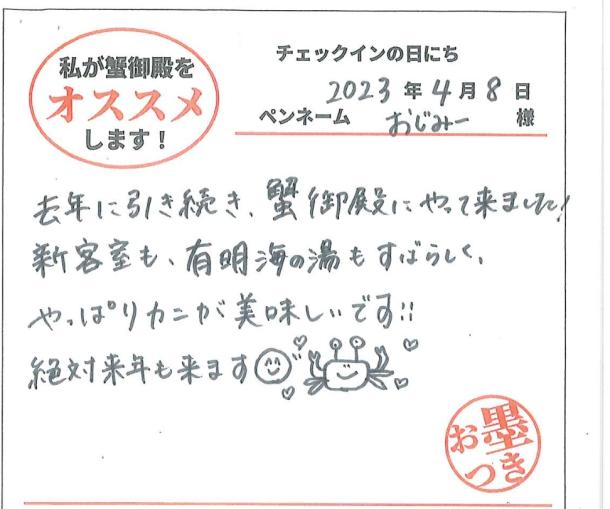 私が蟹御殿を
オススメ
します!
チェックインの日にち
2023年4月8日
ペンネーム おじみー 様
去年に引き続き、蟹御殿にやって来ました!
新客室も、有明海の湯もすばらしく、
やっぱりカニが美味しいです!!
絶対来年も来ます
お墨
つき